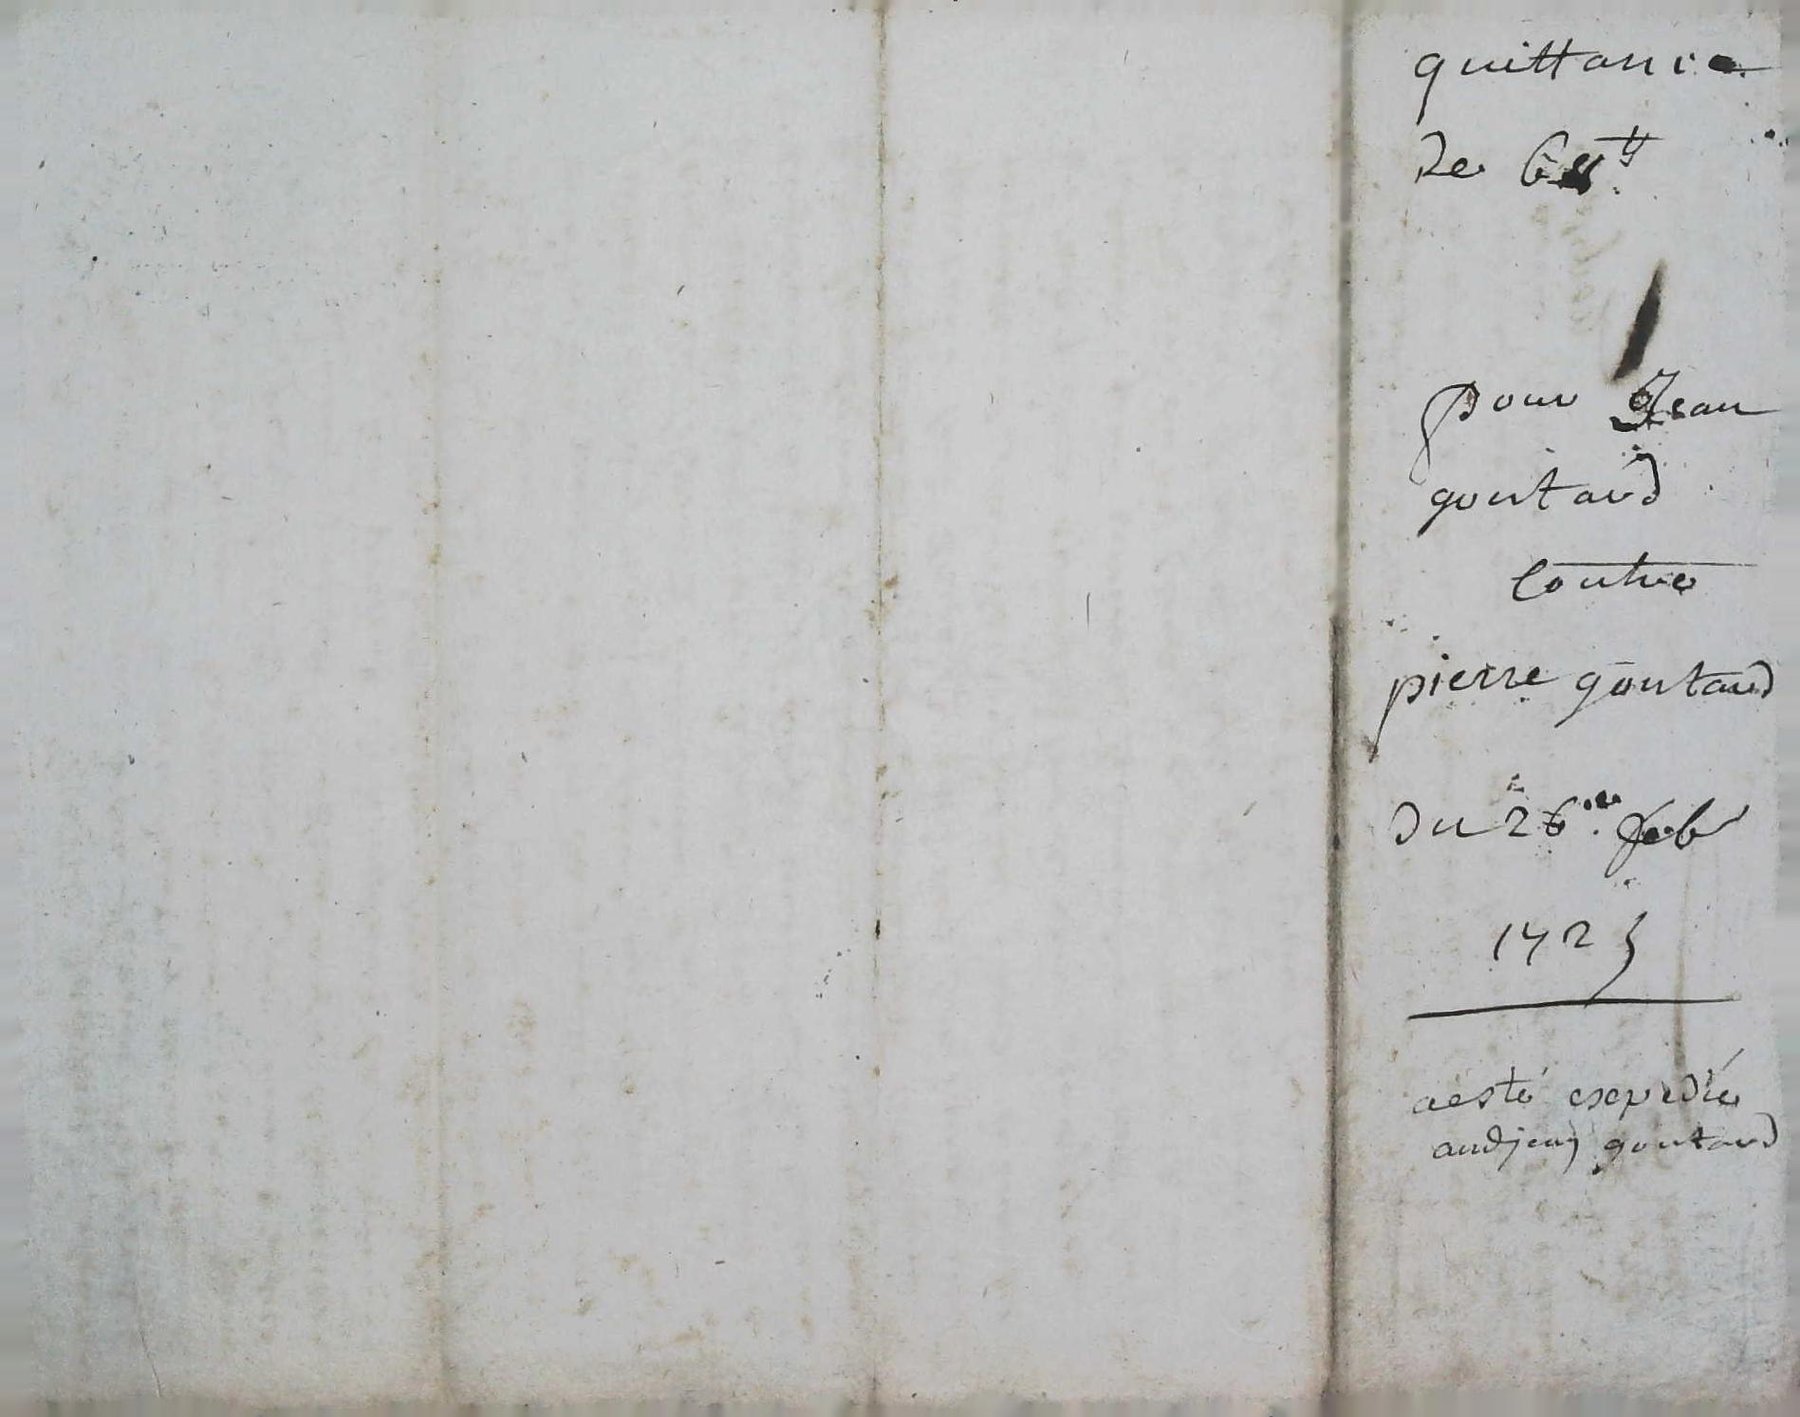 quittance
de
pour Jean
goutard
Contre
pierre goutard
du 26me feb
1725
a esté expedié
audjean goutard